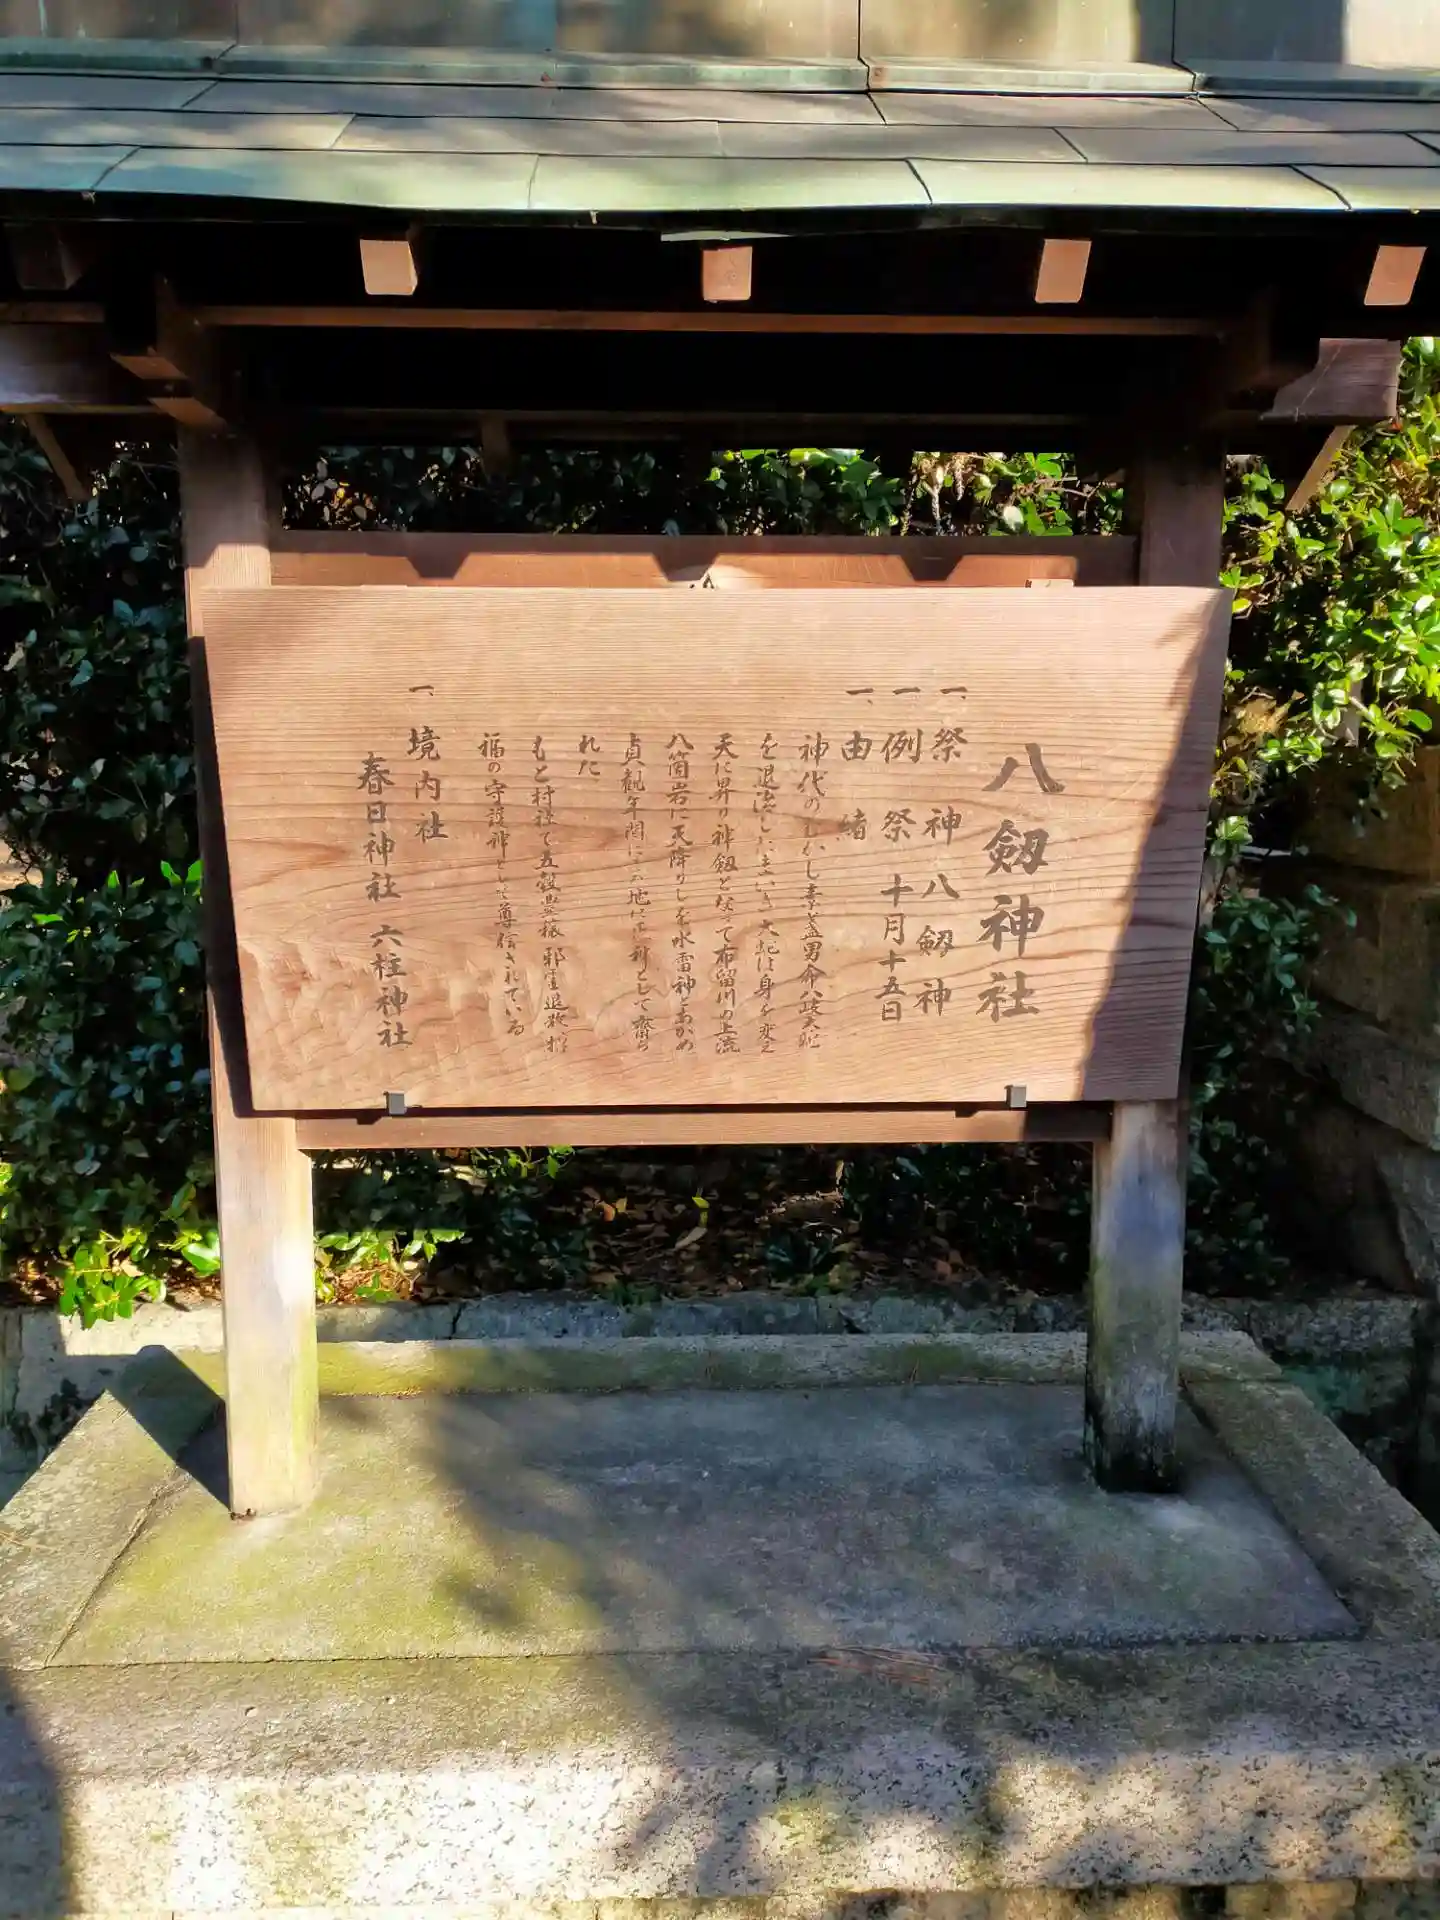 八劔神社
一、祭神 八劔神
一、例祭 十月十五日
一、由緒
神代のむかし素盞男命八岐大蛇
を退治したまいき 大蛇は身を変え
天に昇り神劔となって布留川の上流
八箇岩に天降りしを水雷神とあがめ
貞観年間に此地に 神として齋ら
れた
もと村社で五穀豊穣 邪霊退散、招
福の守護神として尊信されている
一、境内社
春日神社 六柱神社